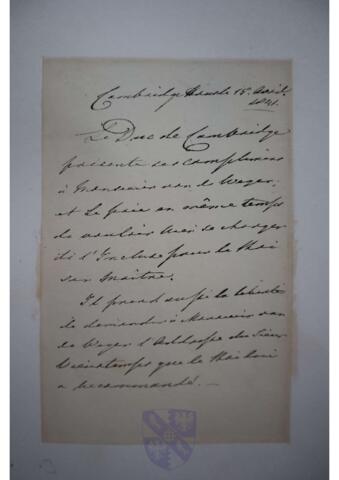 Cambridge House 15. Avril.
1841.
Le Duc de Cambridge
présente ses complimens
à Monsieur van de Weyer,
et Le prie en même temps
de vouloir bien se charger
de l'Incluse pour le Roi
son Maître.
Il prend aussi la liberté
de demander à Monsieur van
de Weyer l'Addresse du Sieur
Vieuxtemps que le Roi lui
a recommandé. —